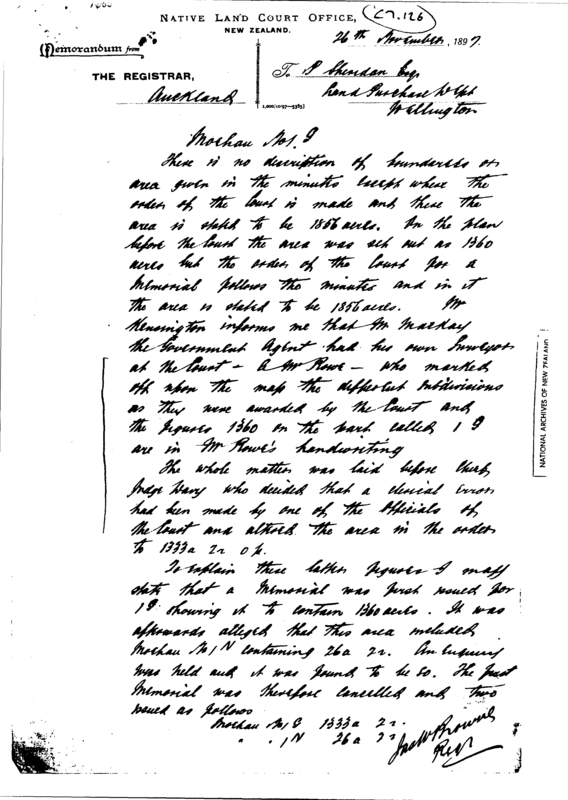 Native Land Court Office,
NEW ZEALAND.
C7.126
26th November, 1897.
Memorandum from
THE REGISTRAR,
Auckland
To P Sheridan Esq
Land Purchase Dept
Wellington
1,000/10/97—5385
Moehau No 1.
There is no description of boundaries or
area given in the minutes except where the
order of the Court is made and there the
area is stated to be 1856 acres. On the plan
before the Court the area was set out as 1360
acres but the order of the Court for a
Memorial follows the minutes and in it
the area is stated to be 1856 acres. Mr
Kensington informs me that Mr Mackay
the Government Agent had his own Surveyor
at the Court – a Mr Rowe – who marked
off upon the map the different Subdivisions
as they were awarded by the Court and
the figures 1360 on the part called 1
are in Mr Rowe's handwriting
The whole matter was laid before Chief
Judge Davy who decided that a clerical error
had been made by one of the Officials of
the Court and altered the area in the order
to 1333a 2r 0p.
To explain these latter figures I may
state that a Memorial was first issued for
1 showing it to contain 1360 acres. It was
afterwards alleged that this area included
Moehau No 1N containing 26a 2r. An enquiry
was held and it was found to be so. The first
Memorial was therefore cancelled and two
issued as follows
Moehau No 1 1333a 2r.
" " 1N 26a 2r
Jas W Browne
Regr
NATIONAL ARCHIVES OF NEW ZEALAND